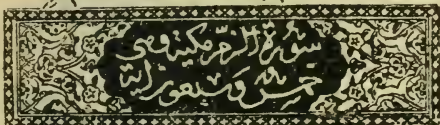 سورة الزمر مكية وهى
خمس وسبعون اية